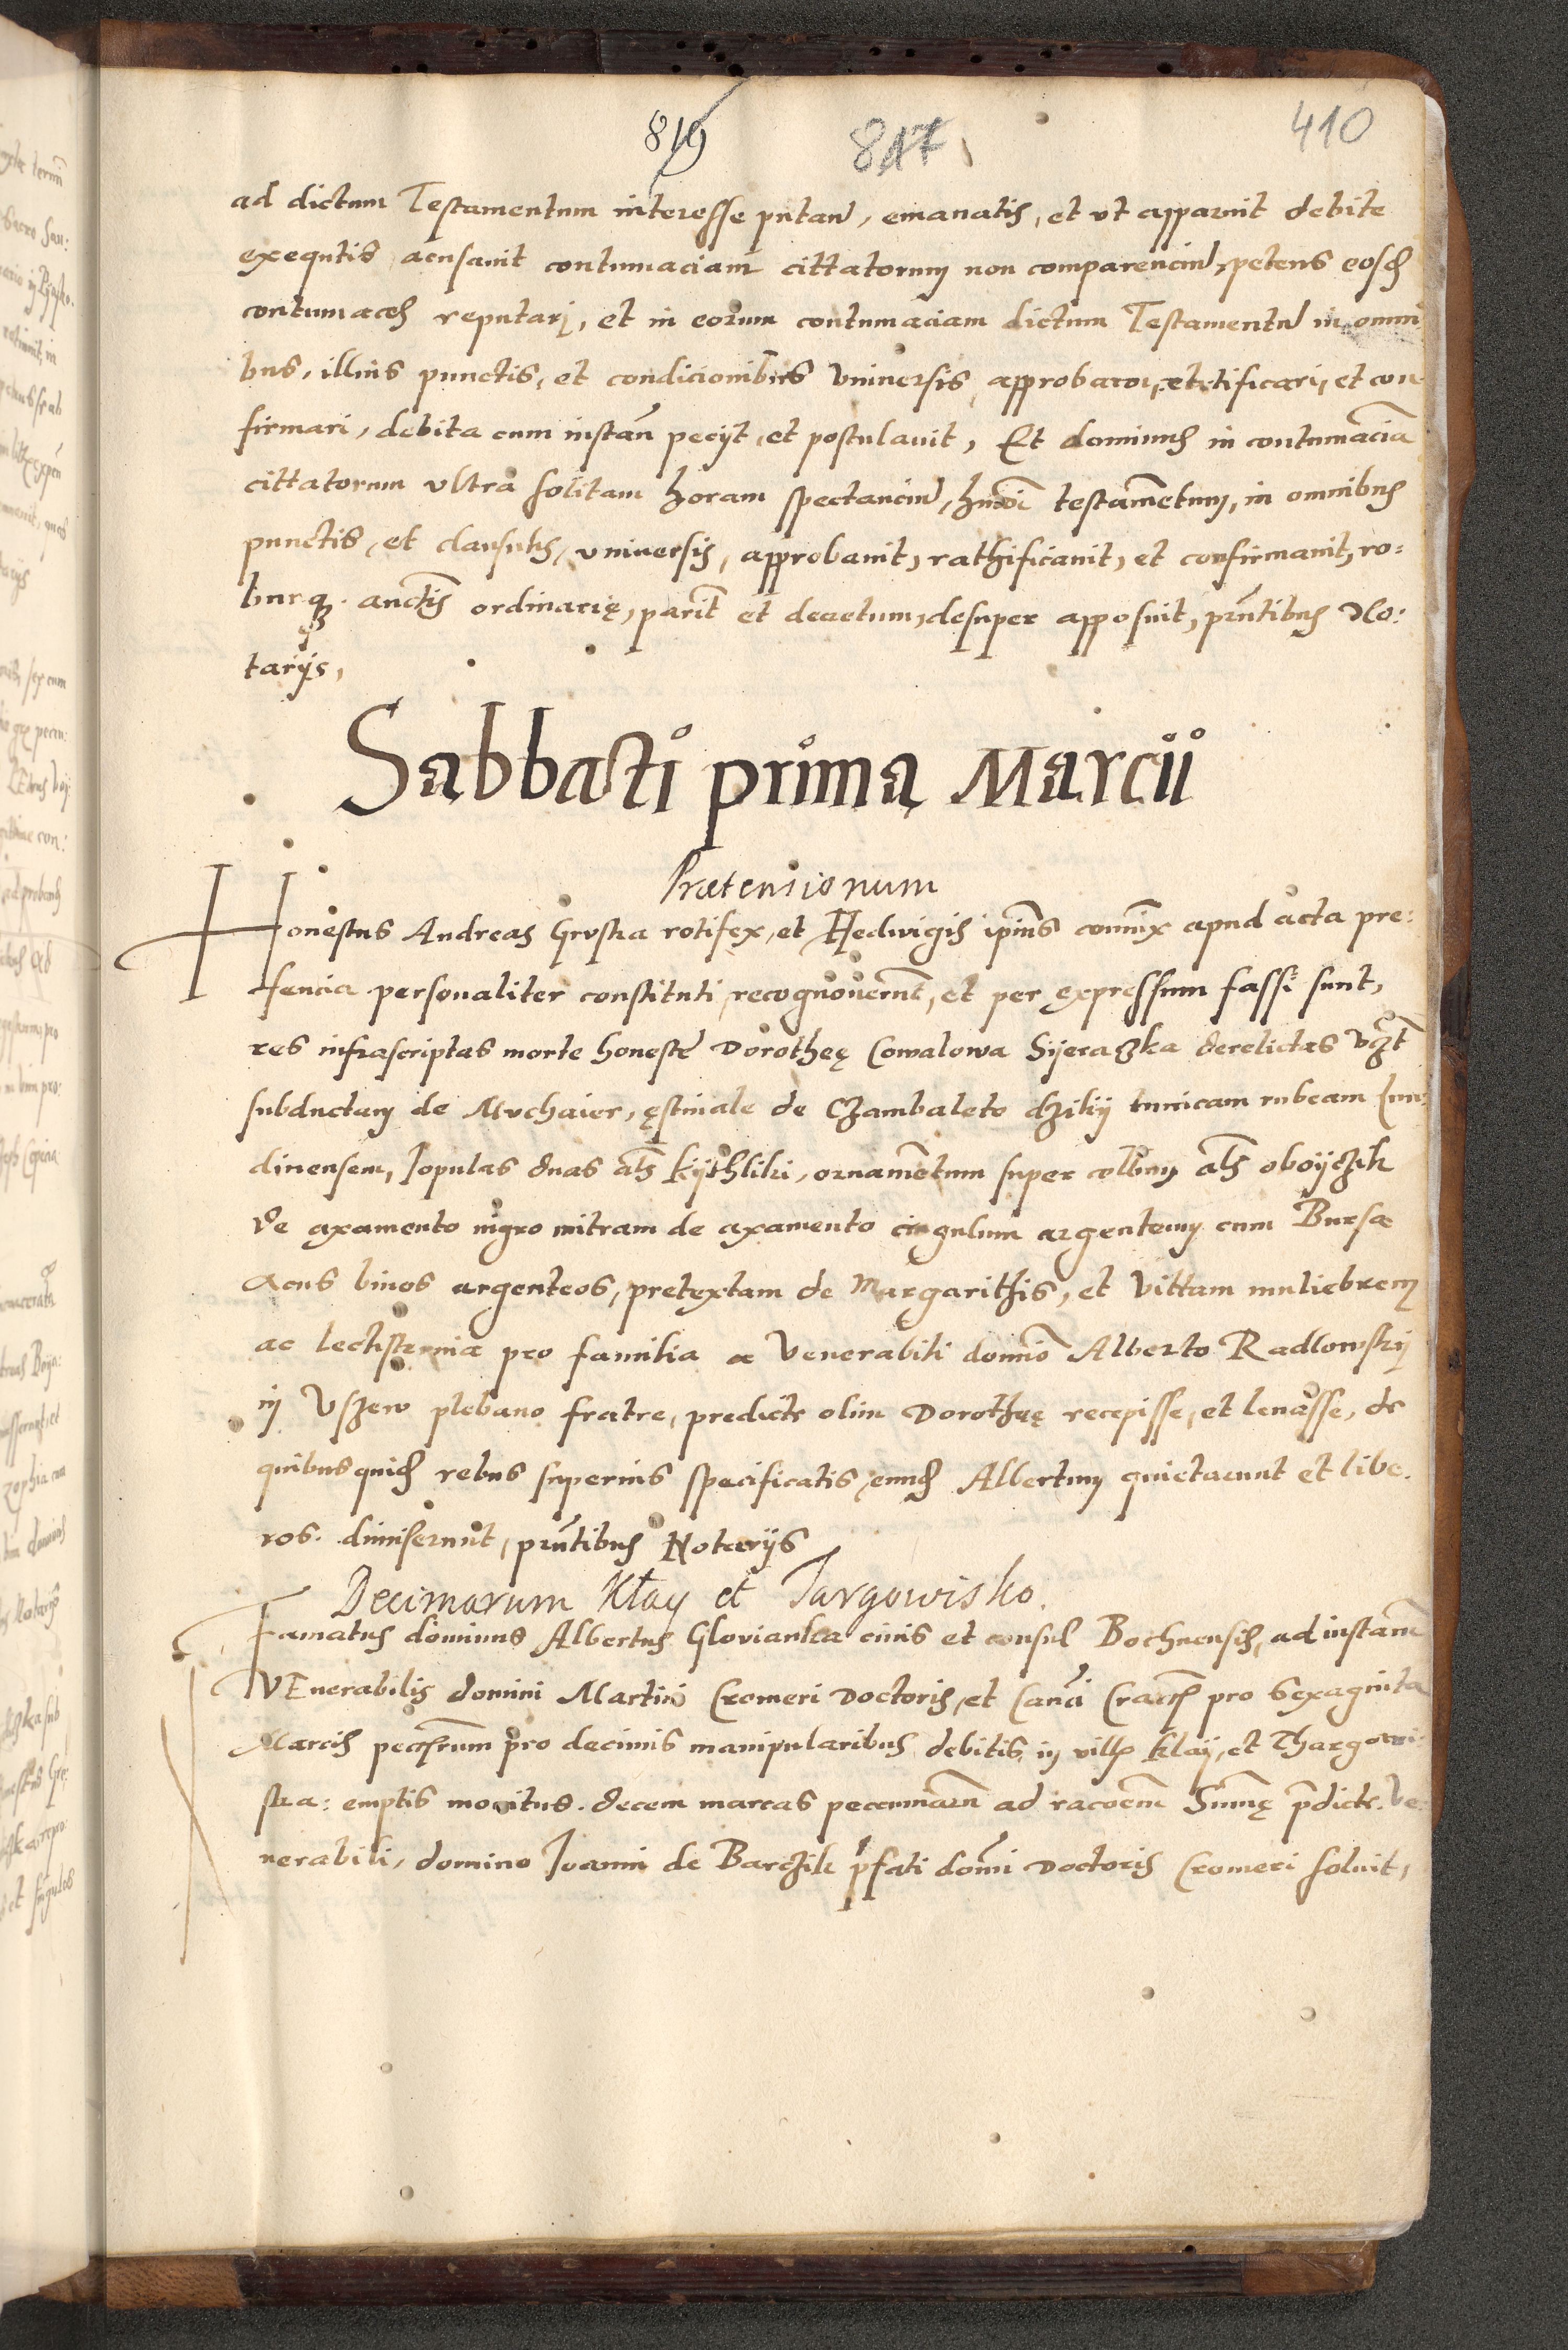 819 847 410
ad dictum Testamentum interesse putan, emanatis, et ut apparuit debite
exequtis acusauit contumaciam cittatorum non comparencium, petens eosd
contumaces reputari, et in eorum contumaciam dictum Testamentu in omni
bus, illius punctis, et condicionibus Vniuersis approbari, et con
firmari, debita cum instan pecijt et postulauit, Et dominus in contumacia
cittatorum vltra solitam horam spectancium, hmoi testametum, in omnibus
punctis, et clausulis, vniuersis, approbauit, rathificauit, et confirmauit, ro:
burq. auctis ordinarię, parit et decretum, desuper apposuit, pntibus No:
tarijs,
Sabbati prima Marcii
Prætensionum
Honestus Andreas Gruska rotifex, et Hedwigis ipius coniux apud acta pre:
sencia personaliter constituti, recognouerunt, et per expressum fassi sunt,
res infrascriptas morte honeste Dorotheę Cowalowa Sijeraczka derelictas vczt
subductam de Muchaier, ęstiuale de Czambaleto dzikij tunicam rubeam lun
dinensem, Iopulas duas als kijthliki, ornametum super collum als oboijczik
de axamento nigro mitram de axamento cingulum argenteum cum Bursa
Acus binos argenteos, pretextam de Margarithis, et Vittam muliebrem
ac lectisternia pro familia a Venerabili domio Alberto Radlowskij
in Vszew plebano fratre, predicte olim Dorotheę recepisse, et leuasse, de
quibusquid rebus superius specificatis, eund Albertum quietarunt et libe.
ros. dimiserunt, pntibus Notarijs
Decimarum Kłay et Targowisko.
Famatus dominus Albertus Glovianka ciuis et consul Bochnensis, ad instam
VEnerabilis domini Martini Cromeri Doctoris, et Canci Craccs pro Sexaginta
Marcis pro decimis manipularibus debitis in Klaij, et Thargowi:
ska: emptis monitus. decem marcas ad racoem Summę pdicte. Ve:
nerabili, domino Ioanni de Barczik pfati domi Doctoris Cromeri soluit,